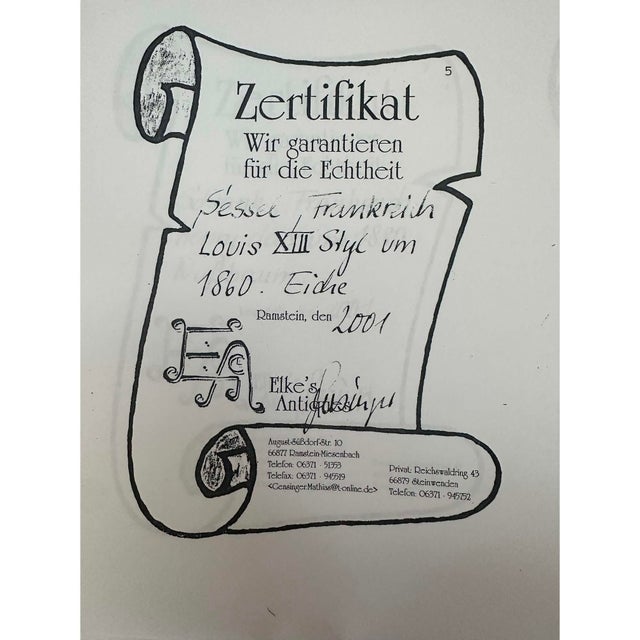 5
Zertifikat
Wir garantieren
für die Echtheit
Sessel, Frankreich
Louis XIII Styl um
1860. Eiche
Ramstein, den 2001
EA
Elke's
Antiques
August-Süßdorf-Str. 10
66877 Ramstein-Miesenbach
Telefon: 06371 - 51353
Telefax: 06371 - 945519
<Gensinger.Mathias@t-online.de>
Privat: Reichswaldring 43
66879 Steinwenden
Telefon: 06371 - 945752